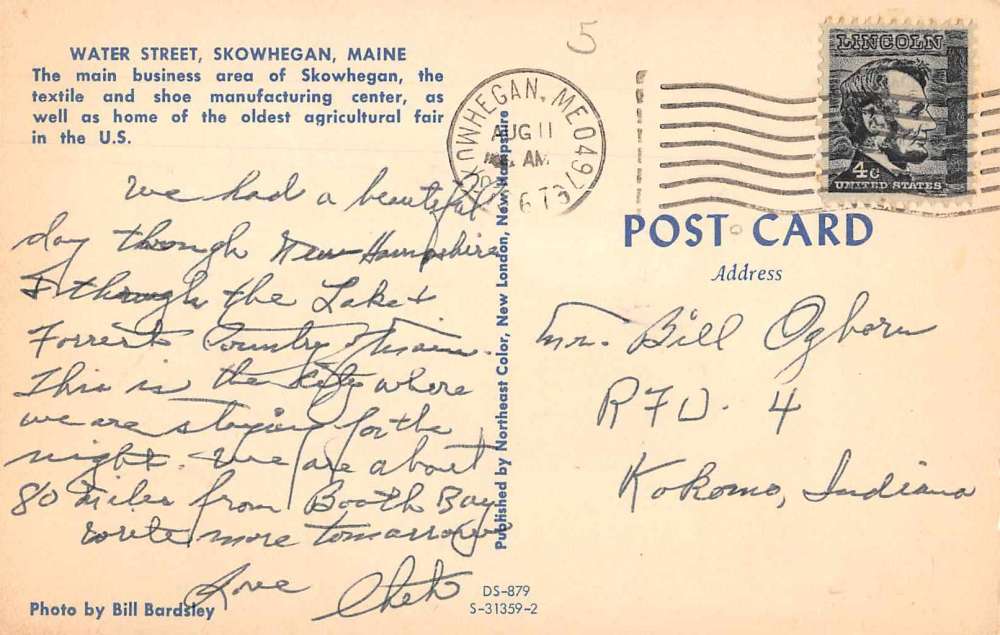 WATER STREET, SKOWHEGAN, MAINE
The main business area of Skowhegan, the
textile and shoe manufacturing center, as
well as home of the oldest agricultural fair
in the U.S.
We had a beautiful
day through New Hampshire
& through the Lake &
Forrest Country of Maine.
This is the City where
we are staying for the
night. We are about
80 miles from Booth Bay
write more tomorrow
Love Chet
Photo by Bill Bardsley
Published by Northeast Color, New London, New Hampshire
DS-879
S-31359-2
5
SKOWHEGAN, ME 0497
AUG 11
AM
LINCOLN
4¢
UNITED STATES
POST CARD
Address
Mr. Bill Ogborn
RFD. 4
Kokomo, Indiana